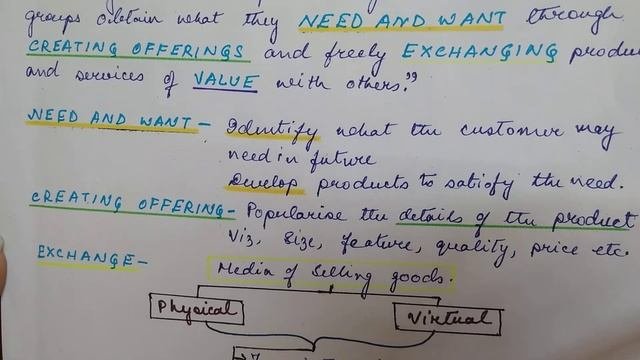 groups obtain what they NEED AND WANT through
CREATING OFFERINGS and freely EXCHANGING produc
and services of VALUE with others."
NEED AND WANT - Identify what the customer may
need in future
Develop products to satisfy the need.
CREATING OFFERING - Popularise the details of the product
Viz, Size, feature, quality, price etc.
EXCHANGE -
Media of Selling goods.
Physical
Virtual